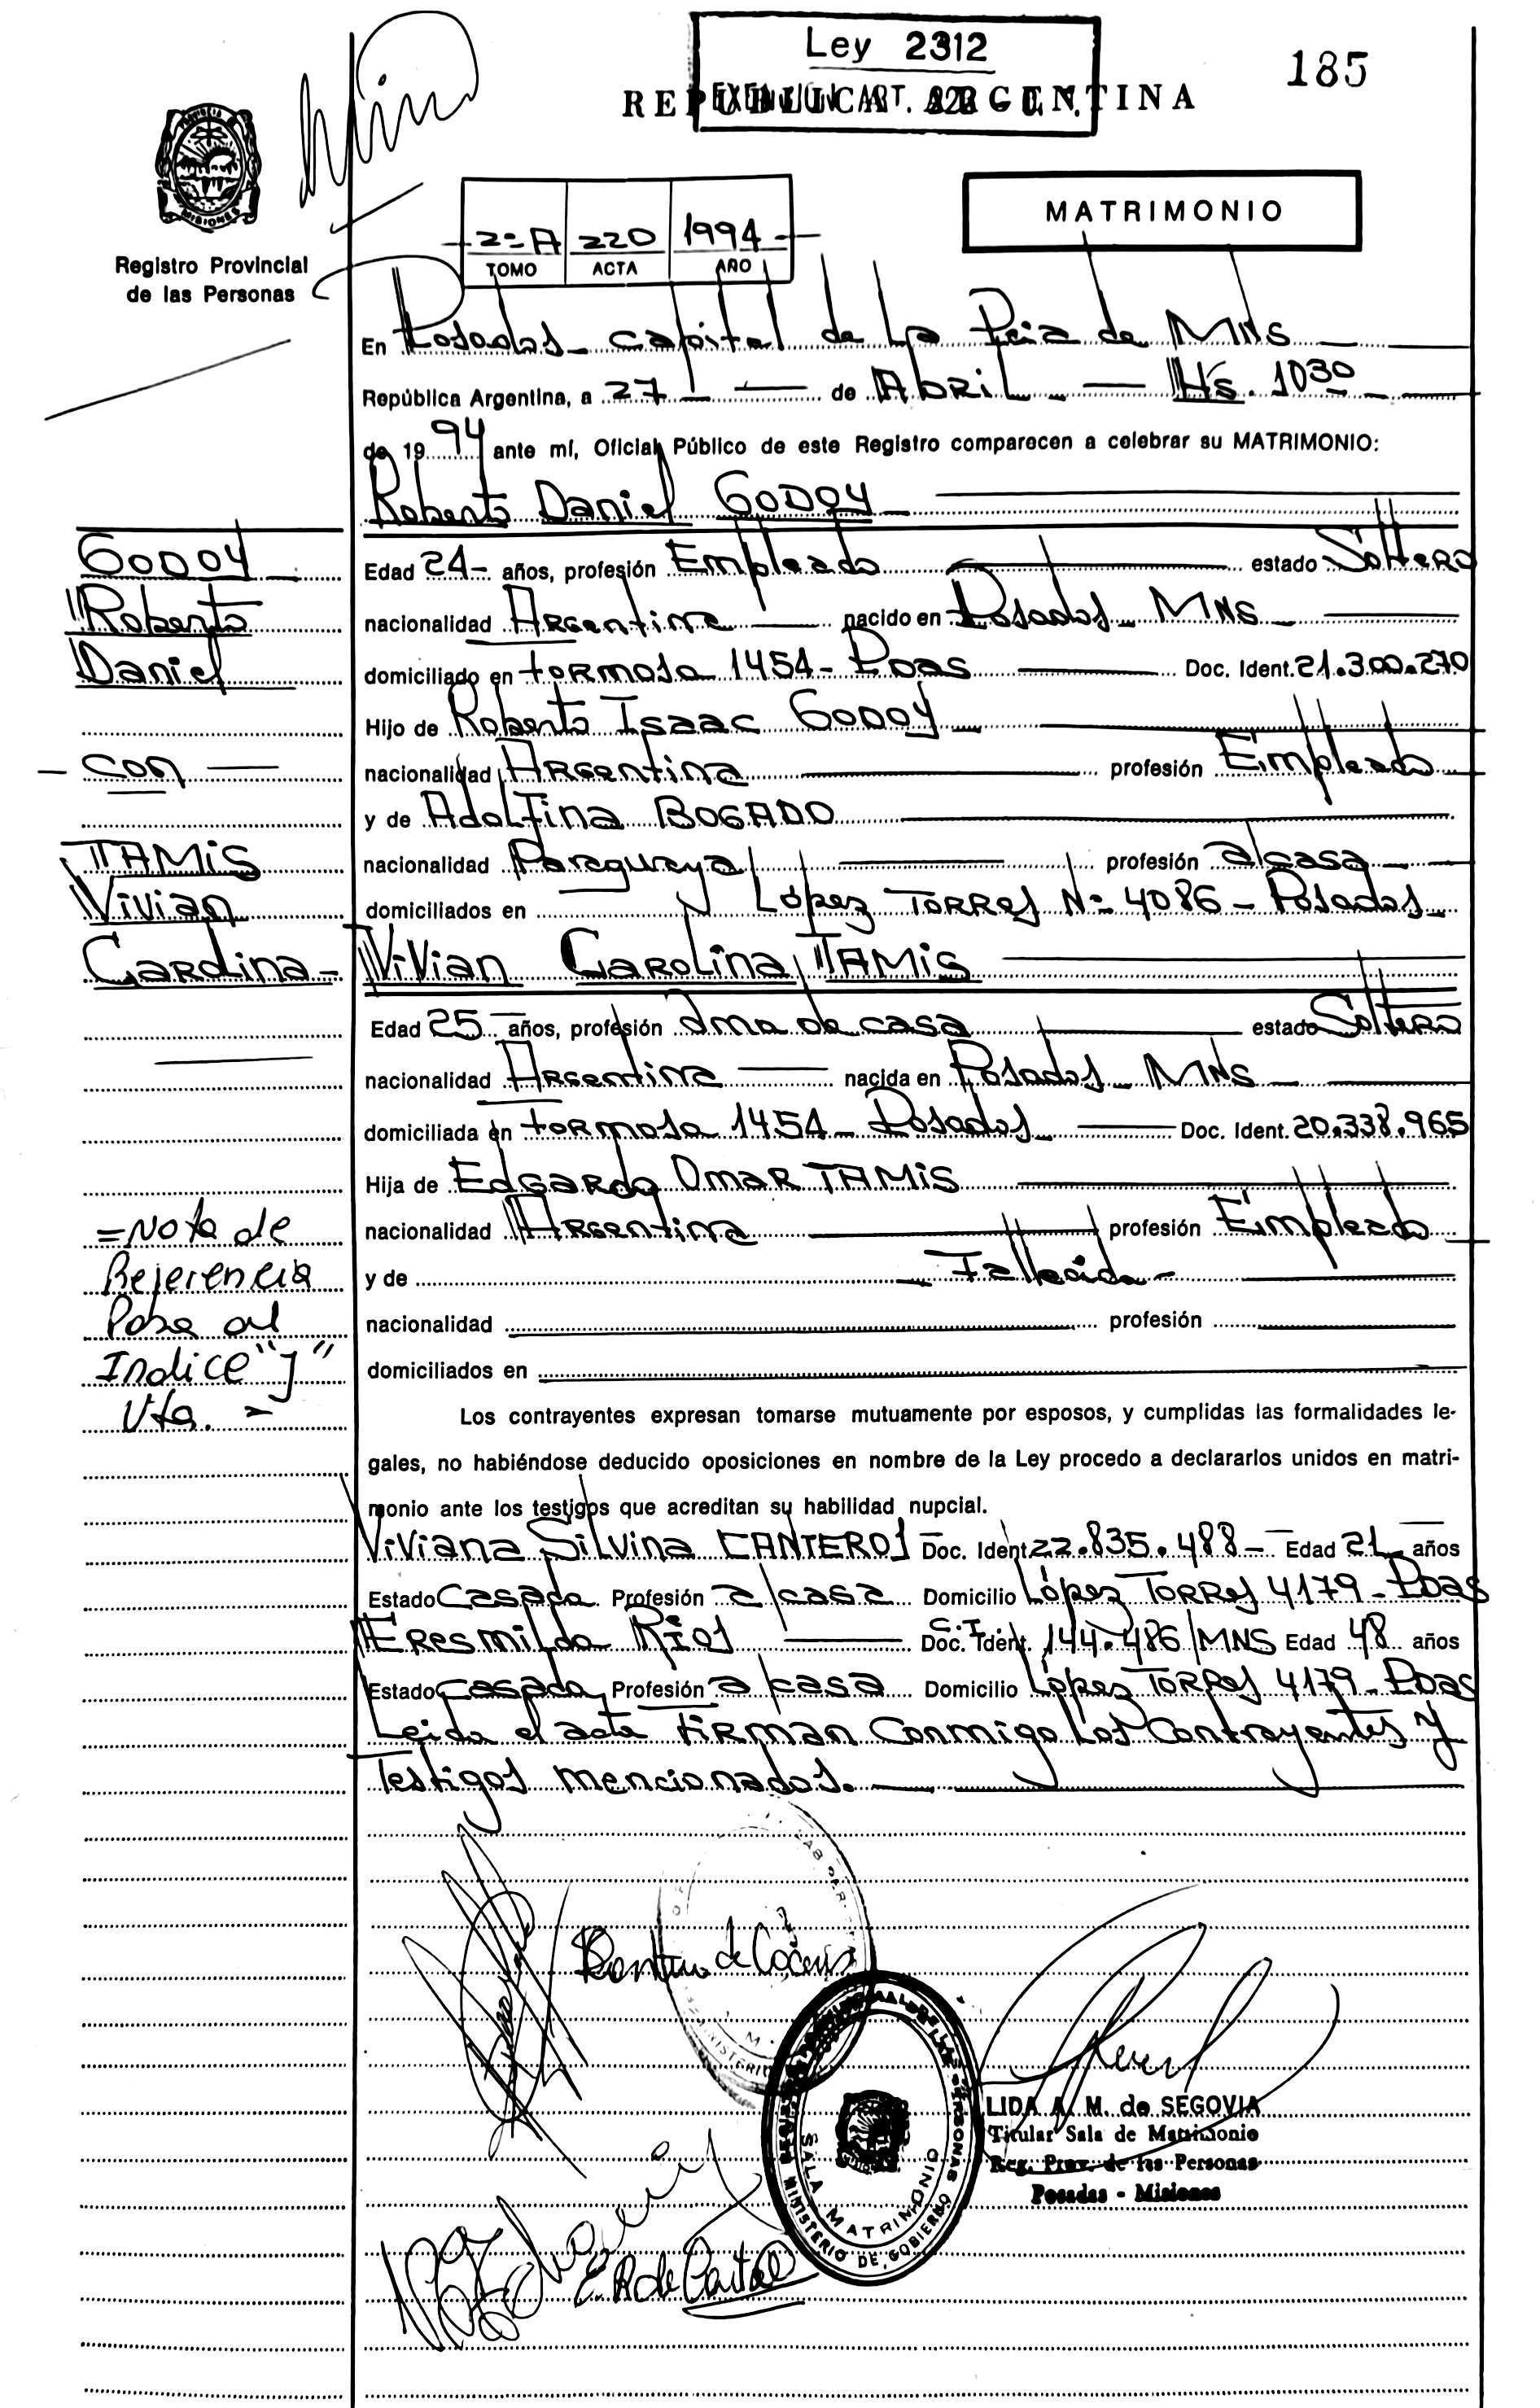 Ley 2312
185
REPUBLICA ARGENTINA
EXENCION ART.
MISIONES
Registro Provincial
de las Personas
2º A 220 1994
TOMO ACTA AÑO
MATRIMONIO
En Posadas - Capital de La Pcia de MNS
República Argentina, a 27 de Abril - Hs. 1030
de 1994 ante mí, Oficial Público de este Registro comparecen a celebrar su MATRIMONIO:
Roberto Daniel GODOY
GODOY
Roberto
Daniel
- con -
TAMIS
Vivian
Carolina -
Edad 24- años, profesión Empleado estado Soltero
nacionalidad Argentina nacido en Posadas - MNS
domiciliado en Formosa 1454 - Pdas Doc. Ident. 21.300.270
Hijo de Roberto Isaac GODOY
nacionalidad Argentina profesión Empleado
y de Adolfina BOGADO
nacionalidad Paraguaya profesión a/casa
domiciliados en López Torres Nº 4086 - Posadas
Vivian Carolina TAMIS
Edad 25 años, profesión Ama de casa estado Soltera
nacionalidad Argentina nacida en Posadas - MNS
domiciliada en Formosa 1454 - Posadas Doc. Ident. 20.338.965
Hija de Edgardo Omar TAMIS
nacionalidad Argentina profesión Empleado
y de Fallecida -
nacionalidad profesión
domiciliados en
=Nota de
Referencia
Pasa al
Indice "J"
Vta. -
Los contrayentes expresan tomarse mutuamente por esposos, y cumplidas las formalidades le-
gales, no habiéndose deducido oposiciones en nombre de la Ley procedo a declararlos unidos en matri-
monio ante los testigos que acreditan su habilidad nupcial.
Viviana Silvina CANTEROS Doc. Ident. 22.835.488 - Edad 21 años
Estado Casada Profesión a/casa Domicilio López Torres 4179 - Pdas
Eresmilda Ríos C.I. Doc. Ident. 144.486/MNS Edad 48 años
Estado Casada Profesión a/casa Domicilio López Torres 4179 - Pdas
Leida el acta Firman Conmigo Los Contrayentes y
Testigos mencionados.
LIDA A. M. de SEGOVIA
Titular Sala de Matrimonio
Reg. Prov. de las Personas
Posadas - Misiones
SALA MATRIMONIO
MINISTERIO DE GOBIERNO
E. R de